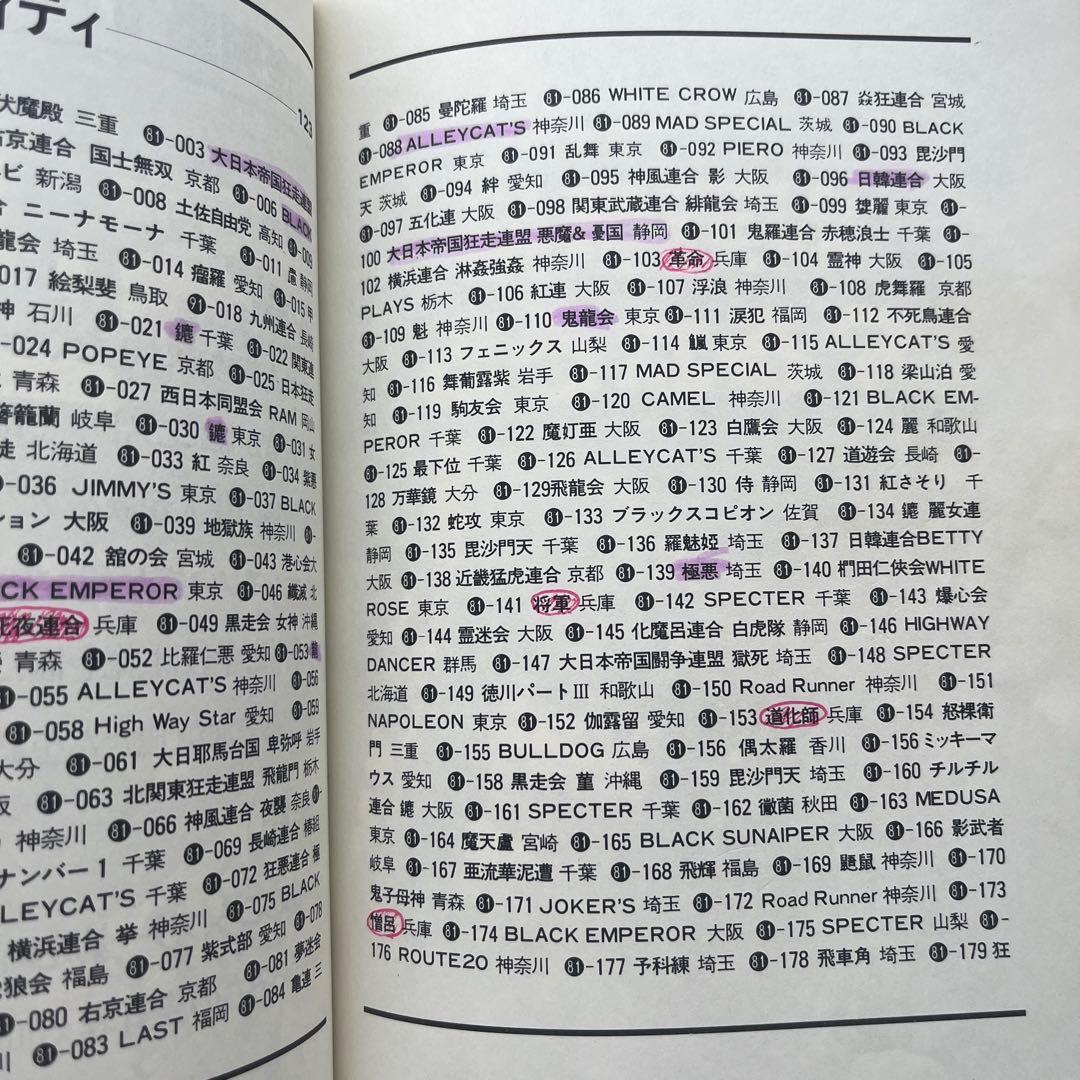 ィティ
123
伏魔殿 三重 81-003 大日本帝国狂走連盟
右京連合 国士無双 京都 81-006 BLACK
ビ 新潟 81-008 土佐自由党 高知 81-009
ニーナモーナ 千葉 81-011 慮 静岡
龍会 埼玉 81-014 瘤羅 愛知 81-015 甲
017 絵梨斐 鳥取 81-018 九州連合 長崎
神 石川 81-021 鏕 千葉 81-022 関東連
-024 POPEYE 京都 81-025 日本狂走
青森 81-027 西日本同盟会 RAM 岡山
籠蘭 岐阜 81-030 鏕 東京 81-031 女
走 北海道 81-033 紅 奈良 81-034 紫悪
-036 JIMMY'S 東京 81-037 BLACK
ション 大阪 81-039 地獄族 神奈川
81-042 舘の会 宮城 81-043 港心会 大
CK EMPEROR 東京 81-046 殲滅 北
死夜連合 兵庫 81-049 黒走会 女神 沖縄
青森 81-052 比羅仁悪 愛知 81-053
81-055 ALLEYCAT'S 神奈川 81-056
81-058 High Way Star 愛知 81-059
大分 81-061 大日耶馬台国 卑弥呼 岩手
阪 81-063 北関東狂走連盟 飛龍門 栃木
神奈川 81-066 神風連合 夜襲 奈良
ナンバー1 千葉 81-069 長崎連合 椿組
LLEYCAT'S 千葉 81-072 狂悪連合 極
横浜連合 挙 神奈川 81-075 BLACK
狼会 福島 81-077 紫式部 愛知 81-078
81-080 右京連合 京都 81-081 夢迷会
川 81-083 LAST 福岡 81-084 亀連 三
重 81-085 曼陀羅 埼玉 81-086 WHITE CROW 広島 81-087 焱狂連合 宮城
81-088 ALLEYCAT'S 神奈川 81-089 MAD SPECIAL 茨城 81-090 BLACK
EMPEROR 東京 81-091 乱舞 東京 81-092 PIERO 神奈川 81-093 毘沙門
天 茨城 81-094 絆 愛知 81-095 神風連合 影 大阪 81-096 日韓連合 大阪
81-097 五化連 大阪 81-098 関東武蔵連合 緋龍会 埼玉 81-099 麗 東京 81-
100 大日本帝国狂走連盟 悪魔&憂国 静岡 81-101 鬼羅連合 赤穂浪士 千葉 81-
102 横浜連合 淋姦強姦 神奈川 81-103 革命 兵庫 81-104 霊神 大阪 81-105
PLAYS 栃木 81-106 紅連 大阪 81-107 浮浪 神奈川 81-108 虎舞羅 京都
81-109 魁 神奈川 81-110 鬼龍会 東京 81-111 涙犯 福岡 81-112 不死鳥連合
大阪 81-113 フェニックス 山梨 81-114 東京 81-115 ALLEYCAT'S 愛
知 81-116 舞葡露紫 岩手 81-117 MAD SPECIAL 茨城 81-118 梁山泊 愛
知 81-119 駒友会 東京 81-120 CAMEL 神奈川 81-121 BLACK EM-
PEROR 千葉 81-122 魔灯亜 大阪 81-123 白鷹会 大阪 81-124 麗 和歌山
81-125 最下位 千葉 81-126 ALLEYCAT'S 千葉 81-127 道遊会 長崎 81-
128 万華鏡 大分 81-129飛龍会 大阪 81-130 侍 静岡 81-131 紅さそり 千
葉 81-132 蛇攻 東京 81-133 ブラックスコピオン 佐賀 81-134 鏕 麗女連
静岡 81-135 毘沙門天 千葉 81-136 羅魅婭 埼玉 81-137 日韓連合BETTY
大阪 81-138 近畿猛虎連合 京都 81-139 極悪 埼玉 81-140 椚田仁侠会WHITE
ROSE 東京 81-141 将軍 兵庫 81-142 SPECTER 千葉 81-143 爆心会
愛知 81-144 霊迷会 大阪 81-145 化魔呂連合 白虎隊 静岡 81-146 HIGHWAY
DANCER 群馬 81-147 大日本帝国闘争連盟 獄死 埼玉 81-148 SPECTER
北海道 81-149 徳川パートIII 和歌山 81-150 Road Runner 神奈川 81-151
NAPOLEON 東京 81-152 伽露留 愛知 81-153 道化師 兵庫 81-154 怒裸衛
門 三重 81-155 BULLDOG 広島 81-156 偶太羅 香川 81-156 ミッキーマ
ウス 愛知 81-158 黒走会 菫 沖縄 81-159 毘沙門天 埼玉 81-160 チルチル
連合 鏕 大阪 81-161 SPECTER 千葉 81-162 黴菌 秋田 81-163 MEDUSA
東京 81-164 魔天盧 宮崎 81-165 BLACK SUNAIPER 大阪 81-166 影武者
岐阜 81-167 亜流華泥遭 千葉 81-168 飛輝 福島 81-169 鼯鼠 神奈川 81-170
鬼子母神 青森 81-171 JOKER'S 埼玉 81-172 Road Runner 神奈川 81-173
憎呂 兵庫 81-174 BLACK EMPEROR 大阪 81-175 SPECTER 山梨 81-
176 ROUTE20 神奈川 81-177 予科練 埼玉 81-178 飛車角 埼玉 81-179 狂